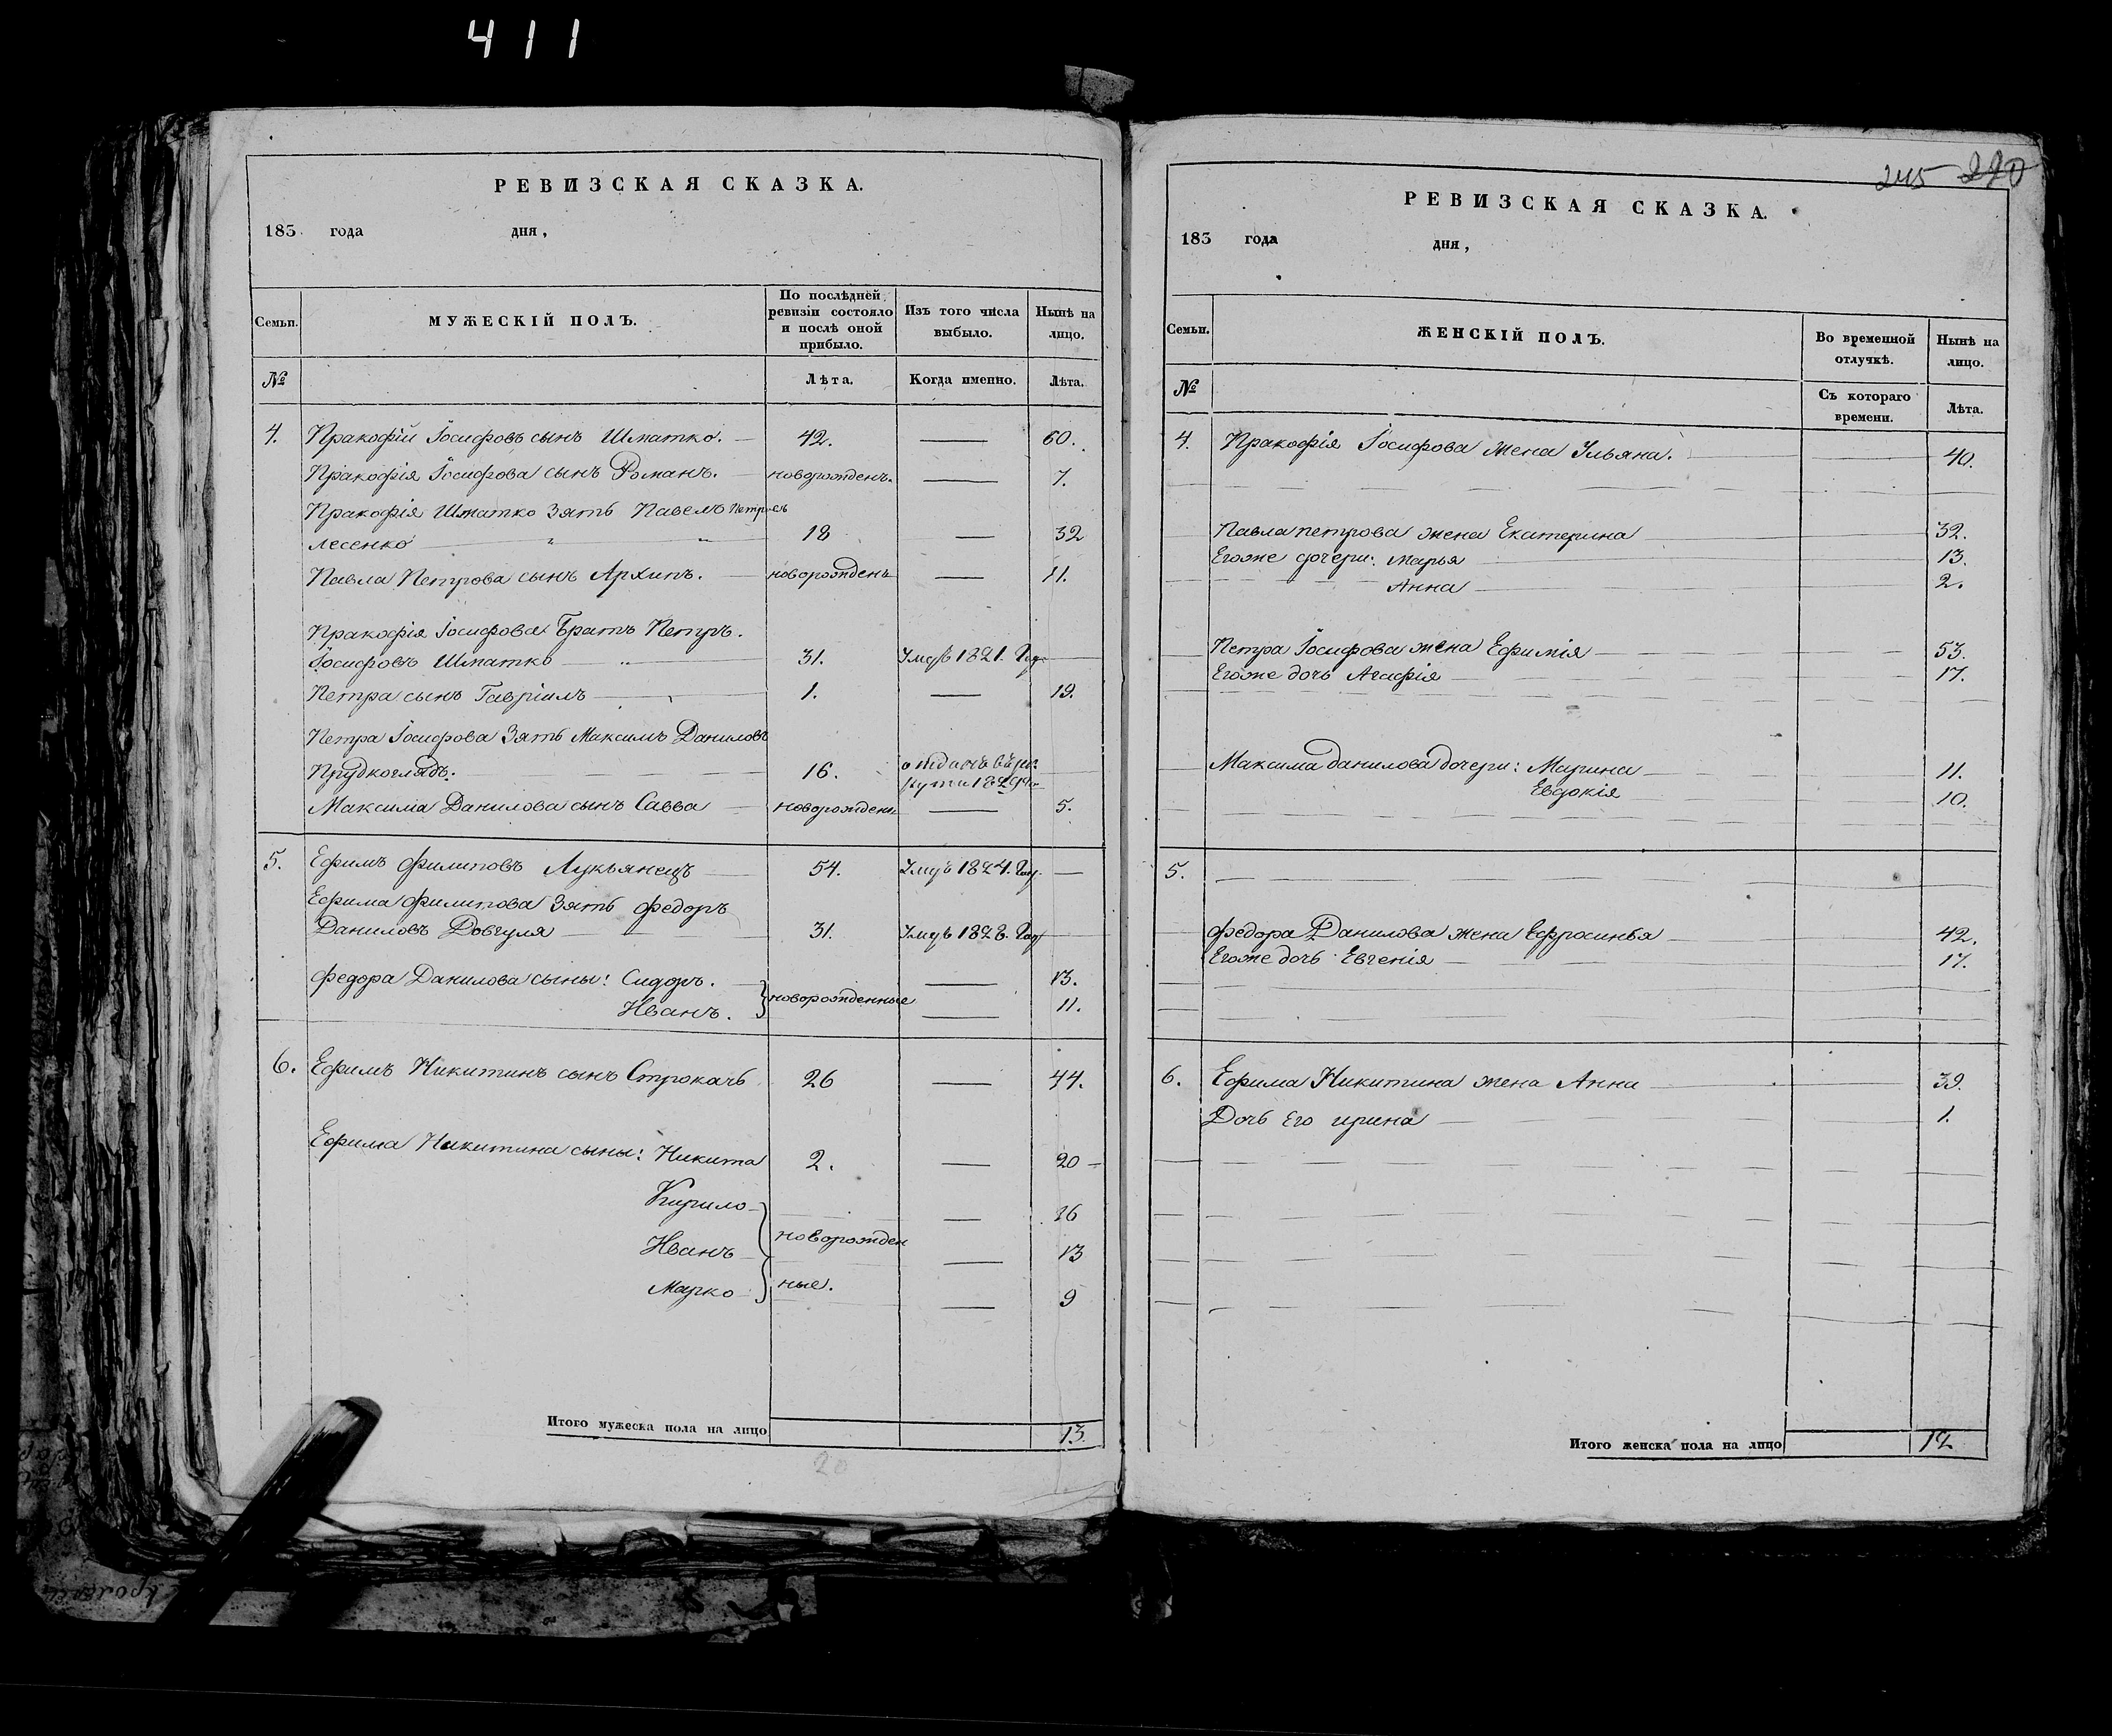 411
РЕВИЗСКАЯ СКАЗКА.
183 года дня,
Семьи. МУЖЕСКІЙ ПОЛЪ. По послѣдней ревизіи состояло и послѣ оной прибыло. Изъ того числа выбыло. Нынѣ на лицо.
№ Лѣта. Когда именно. Лѣта.
4. Пракофій Іосифовъ сынъ Шматко. 42. — 60.
Пракофія Іосифова сынъ Романъ. новорожденъ. — 7.
Пракофія Шматко зять Павелъ Петровъ
лесенко 18 — 32
Павла Петрова сынъ Архипъ. новорожденъ — 11.
Пракофія Іосифова Братъ Петръ.
Іосифовъ Шматко 31. Умеръ 1821. Год —
Петра сынъ Гавріилъ 1. — 19.
Петра Іосифова зять Максимъ Даниловъ
Прудкоглядъ. 16. отданъ въ рекруты 1829
Максима Данилова сынъ Савва новорожден — 5.
5. Ефимъ Филиповъ Лукьянецъ 54. Умеръ 1824. Год. —
Ефима Филипова зять Федоръ
Даниловъ Довгуля 31. Умеръ 1828. Год —
Федора Данилова сыны: Сидоръ. — 13.
новорожденные
Иванъ. — 11.
6. Ефимъ Никитинъ сынъ Строкачь 26 — 44.
Ефима Никитина сыны: Никита 2. — 20
Кирило — 16
Иванъ новорожден — 13
Марко ные. — 9
Итого мужеска пола на лицо 13.
20
245 220
РЕВИЗСКАЯ СКАЗКА.
183 года дня,
Семьи. ЖЕНСКІЙ ПОЛЪ. Во временной отлучкѣ. Нынѣ на лицо.
№ Съ котораго времени. Лѣта.
4. Пракофія Іосифова жена Ульяна. 40.
Павла петрова жена Екатерина 32.
Егоже дочери: Марья 13.
Анна 2.
Петра Іосифова жена Ефимія 53.
Егоже дочь Агафія 17.
Максима данилова дочери: Марина 11.
Евдокія 10.
5.
Федора Данилова жена Ефросинья 42.
Егоже дочь Евгенія 17.
6. Ефима Никитина жена Анна 39.
Дочь Его ирина 1.
Итого женска пола на лицо 12